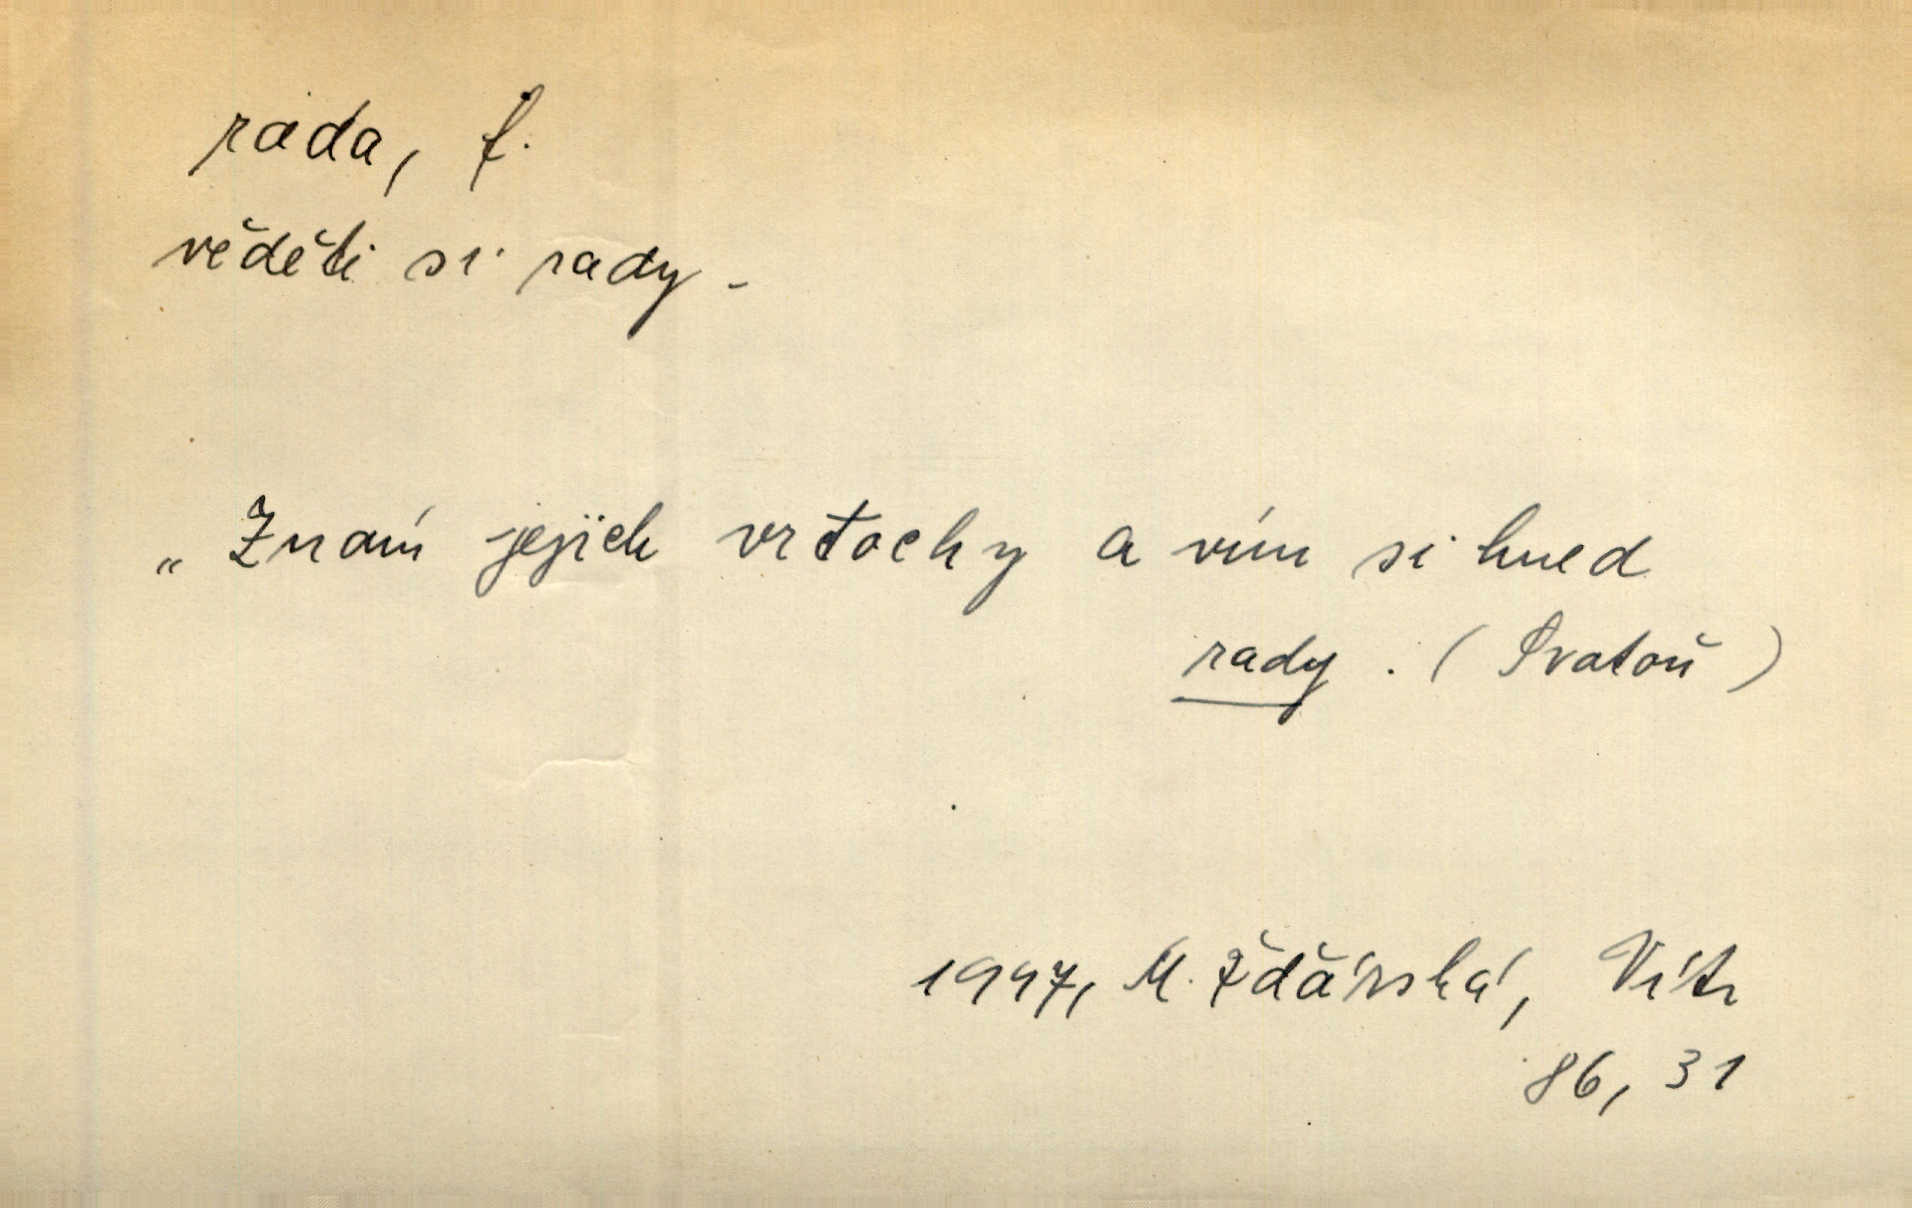 rada, f.
věděti si rady -
„Znám jejich vrtochy a vím si hned
rady. (Svatoň)
1947, M. Žďárská, Vítr
86, 31